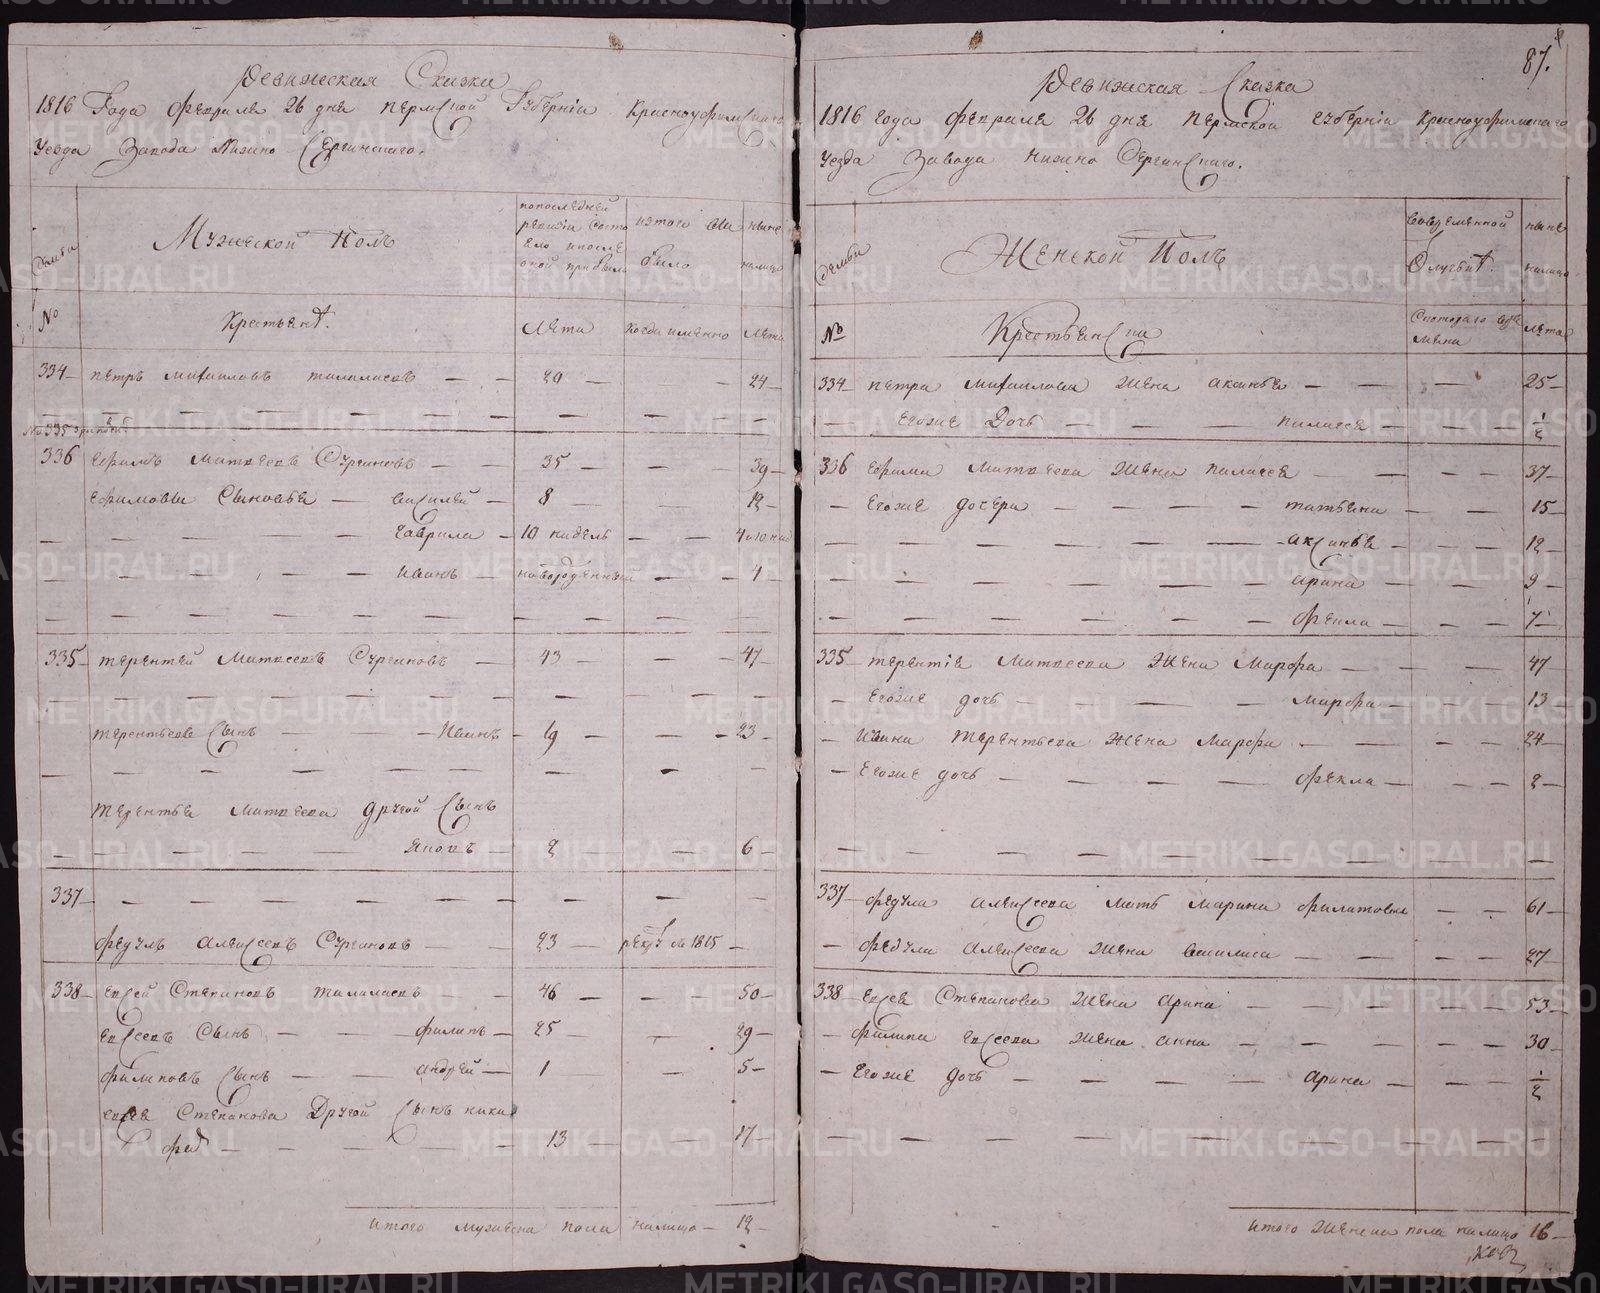 Ревижская Сказка
1816 Года февраля 26 дня пермской Губерніи Красноуфимскаго
уезда Завода Нижно Сергинскаго.
Семьи
Мужеской Полъ
по последней ревизіи состояло и после оной прибыло
изтого числа выбыло
ныне налицо
№
Крестьянѣ.
Лета
Когда именно
Лета
334 — петръ михаиловъ талалаевъ — — 20 — — 24 —
№ 335
336 ефимъ матвеевъ Сургановъ — — 35 — — — 39 —
ефимовы Сыновья — василей — 8 — — 12 —
— — — — гаврила — 10 нидель — — 4 и 10 нид
— — — — иванъ — новорожденной — — 4 —
335 — терентей матвеевъ Сургановъ — 43 — — 47 —
терентьевъ Сынъ — — — Иванъ — 19 — — — 23 —
терентья матвеева другой Сынъ
— — — — яковъ — 2 — — 6 —
337 — — — — — — —
федулъ алексеевъ Сургановъ — — 23 — рекру в 1815 —
338 — евсей Степановъ талалаевъ — 46 — — — 50 —
евсеевъ Сынъ — — филипъ — 25 — — 29 —
филиповъ Сынъ — — андрей — 1 — 5 —
евсея Степанова Другой Сынъ ники
фор — — — — 13 — — 17 —
итого мужеска пола налицо — 12 —
87.
Ревижская Сказка
1816 года февраля 26 дня пермской губерніи красноуфимскаго
уезда Завода нижно Сергинскаго.
Семьи
Женской Полъ
Вовременной отлучкѣ.
ныне налицо
№
Крестьянски
С котораго времени
лета
334 — петра михаилова жена аксинья — — — 25 —
— Егоже Дочь — — — пилагея — — — 1/2
336 ефима матвеева жена пилагея — — — 37 —
— Егоже дочери — — — — татьяна — — — 15 —
— — — — — — аксинья — — — 12 —
— — — — — — арина — — — 9 —
— — — — — — фекла — — — 7 —
335 — терентіе матвеева жена марфа — — — — 47
— Егоже дочь — — — марфа — — — 13
— ивана терентьева жена марфа — — — 24 —
— Егоже дочь — — — фекла — — — 2 —
337 — федула алексеева мать марина филатовна — — 61 —
— федула алексеева жена василиса — — — — 27 —
338 — евсея Степанова жена арина — — — — 53 —
— филипа евсеева жена анна — — — — 30 —
— Егоже дочь — — — — арина — — — 1/2
итого женска пола налицо 16 —
METRIKI.GASO-URAL.RU